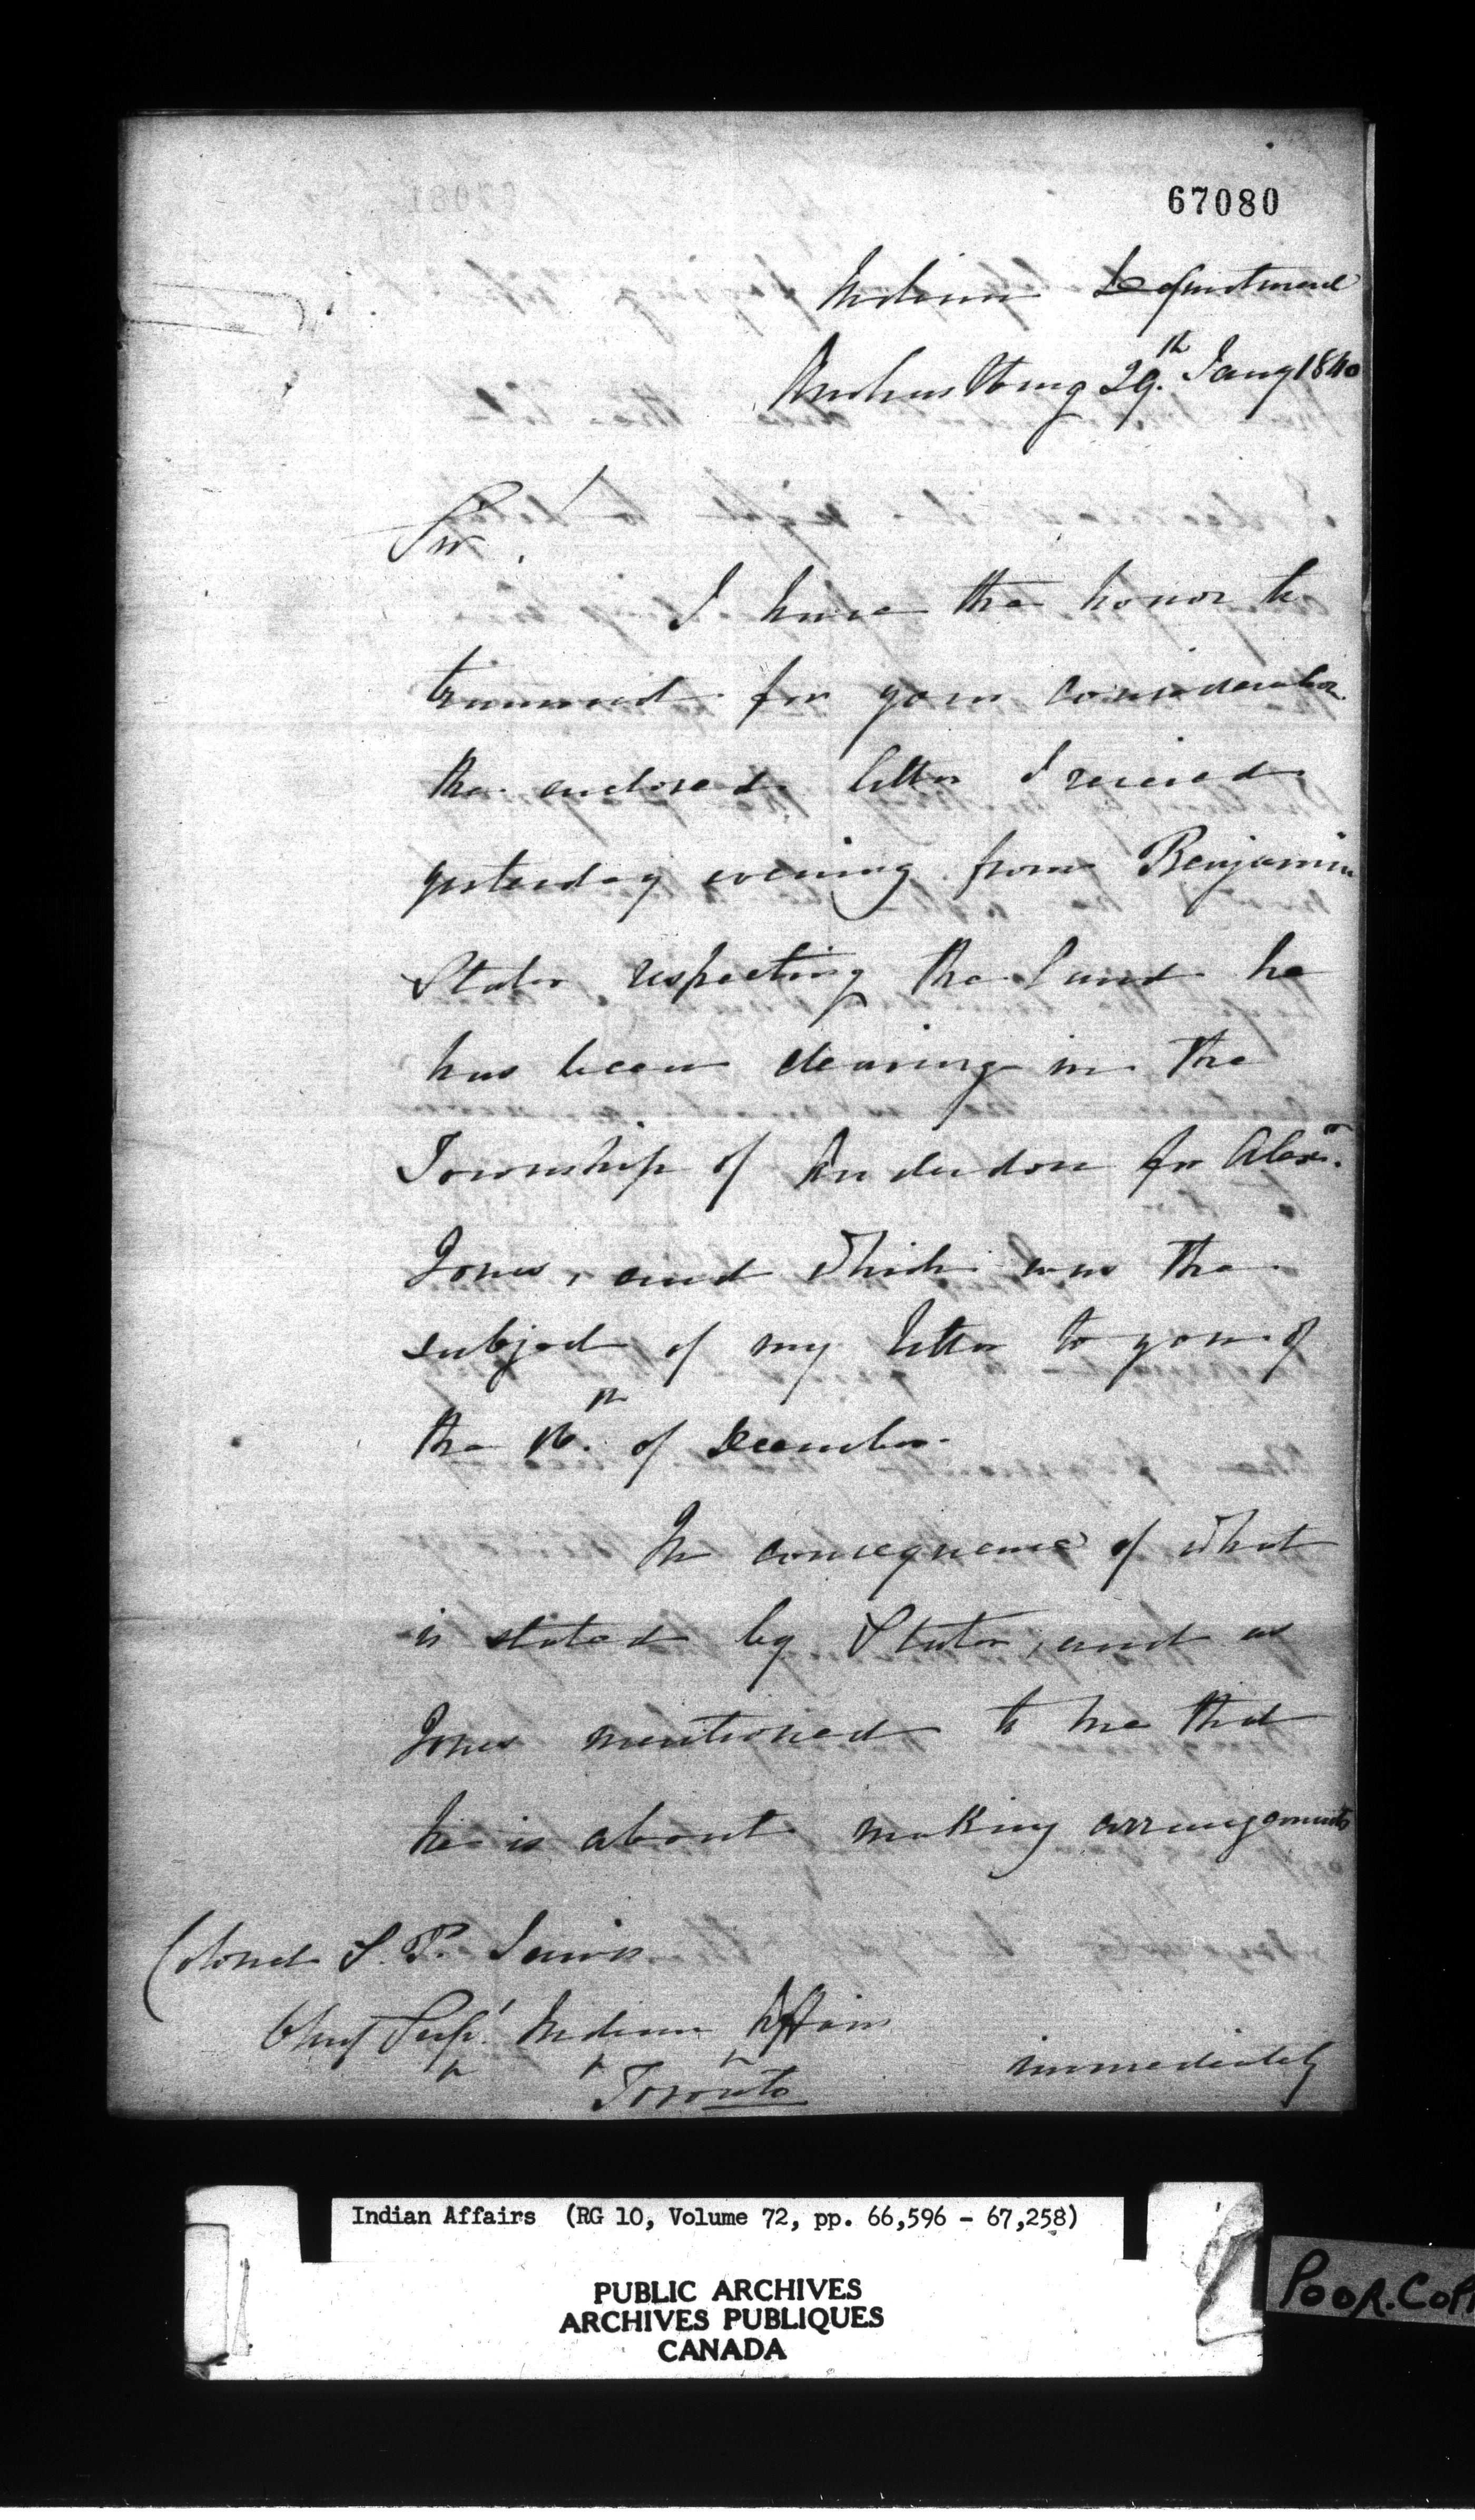 67080
Indian Department
Amherstburg 29.th Jany 1840
Sir,
I have the honor to
transmit for your consideration
the enclosed letter I recieved
yesterday evening from Benjamin
Slater respecting the land he
has been clearing in the
Township of Anderdon for Alexr.
Jones, and which was the
subject of my letter to you of
the 16.th of December.
In consequence of what
is stated by Slater, and as
Jones mentioned to me that
he is about making arrangements
Colonel S. P. Jarvis
Chief Supt. Indian Affairs
Toronto
immediately
Indian Affairs (RG 10, Volume 72, pp. 66,596 - 67,258)
PUBLIC ARCHIVES
ARCHIVES PUBLIQUES
CANADA
POOR.COP